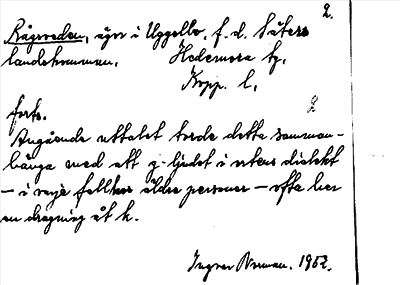 2.
Rågsveden, äga i Uggelbo, f.d. Säters
landskommun, Hedemora tg,
Kopp. l,
forts.
Angående uttalet torde detta samman-
hänga med att g-ljudet i ortens dialekt
– i varje fall hos äldre personer – ofta har
en dragning åt k.
Ingvar Norman. 1952.